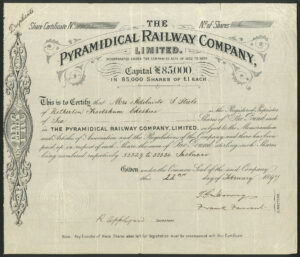 Duplicate
Share Certificate No
No of Shares
THE
PYRAMIDICAL RAILWAY COMPANY,
LIMITED.
INCORPORATED UNDER THE COMPANIES ACTS OF 1862 TO
Capital £85,000
IN 85,000 SHARES OF £1 EACH.
This is to Certify that Mrs
Cheshire is the Registered Proprietor
of Ten Shares of One Pound each
in THE PYRAMIDICAL RAILWAY COMPANY, LIMITED, subject to the Memorandum
and Articles of Association and the Regulations of the Company and there has been
paid up in respect of each Share the sum of One Pound sterling such Shares
being numbered respectively to inclusive
Given under the Common Seal of the said Company
this 22nd day of February 1897
R Appleyard
Frank
Note, Any Transfer of these Shares when left for Registration must be accompanied with this Certificate